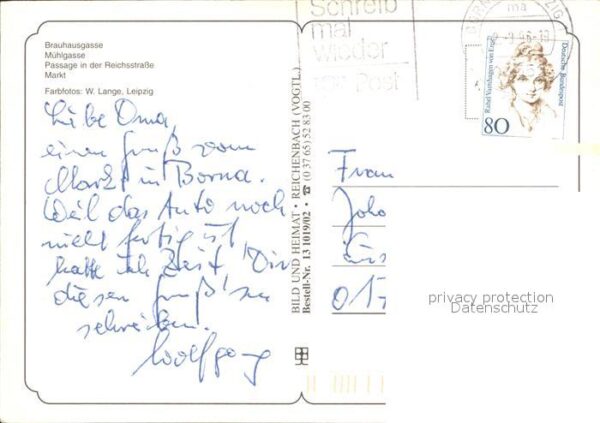 Brauhausgasse
Mühlgasse
Passage in der Reichsstraße
Markt
Farbfotos: W. Lange, Leipzig
Liebe Oma,
einen Gruß vom
Markt in Borna.
Weil das Auto noch
nicht fertig ist
hatte ich Zeit, Dir
diesen Gruß zu
schreiben.
Wolfgang
BILD UND HEIMAT • REICHENBACH (VOGTL.)
Bestell-Nr. 13 1019/02 • ☎ (0 37 65) 52 83 00
Schreib
mal
wieder
Post
80
Rahel Varnhagen von Ense
Deutsche Bundespost
Frau
Joh
017
privacy protection
Datenschutz